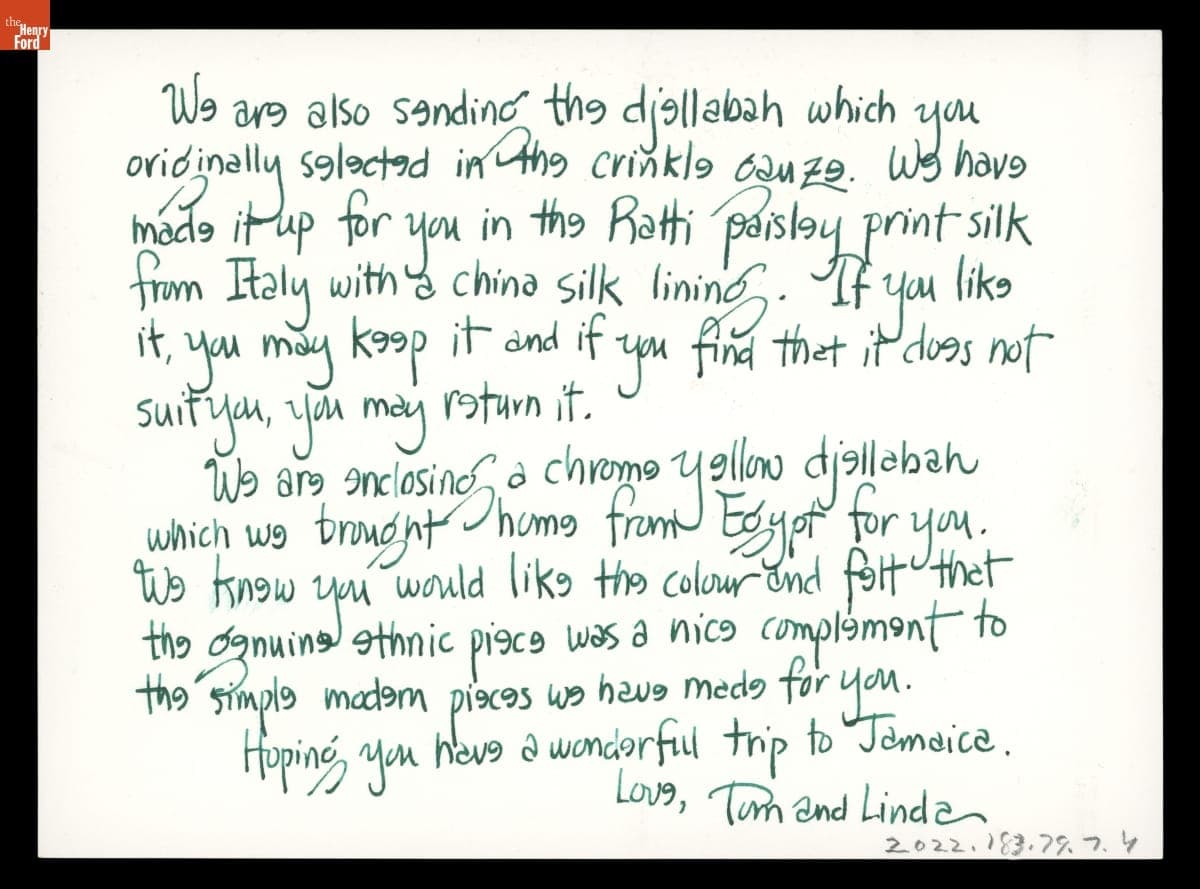 the
Henry
Ford
We are also sending the djellabah which you
originally selected in the crinkle gauze. We have
made it up for you in the Ratti paisley print silk
from Italy with a china silk lining. If you like
it, you may keep it and if you find that it does not
suit you, you may return it.
We are enclosing a chrome yellow djellabah
which we brought home from Egypt for you.
We knew you would like the colour and felt that
the genuine ethnic piece was a nice complement to
the simple modern pieces we have made for you.
Hoping you have a wonderful trip to Jamaica.
Love, Tom and Linda
2022.183.79.7.4